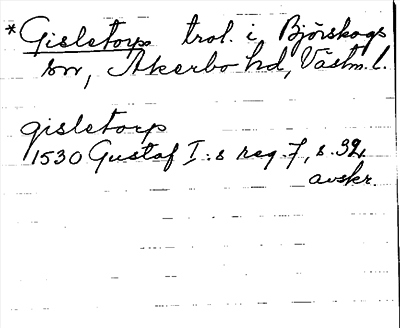 *Gisletorp trol. i Björskogs
sn, Åkerbo hd, Västm. l.
gisletorp
1530 Gustaf I:s reg. 7, s. 32,
avskr.